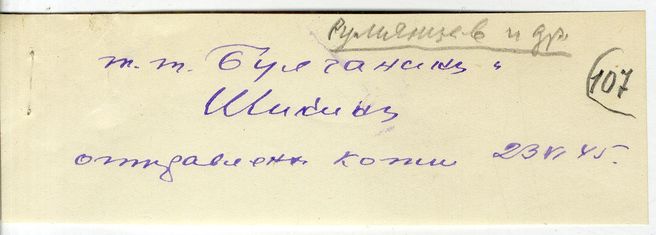 Румянцев и др.
107
т.т. Булганину
Шикину
отправлены копии 23 VI 45.